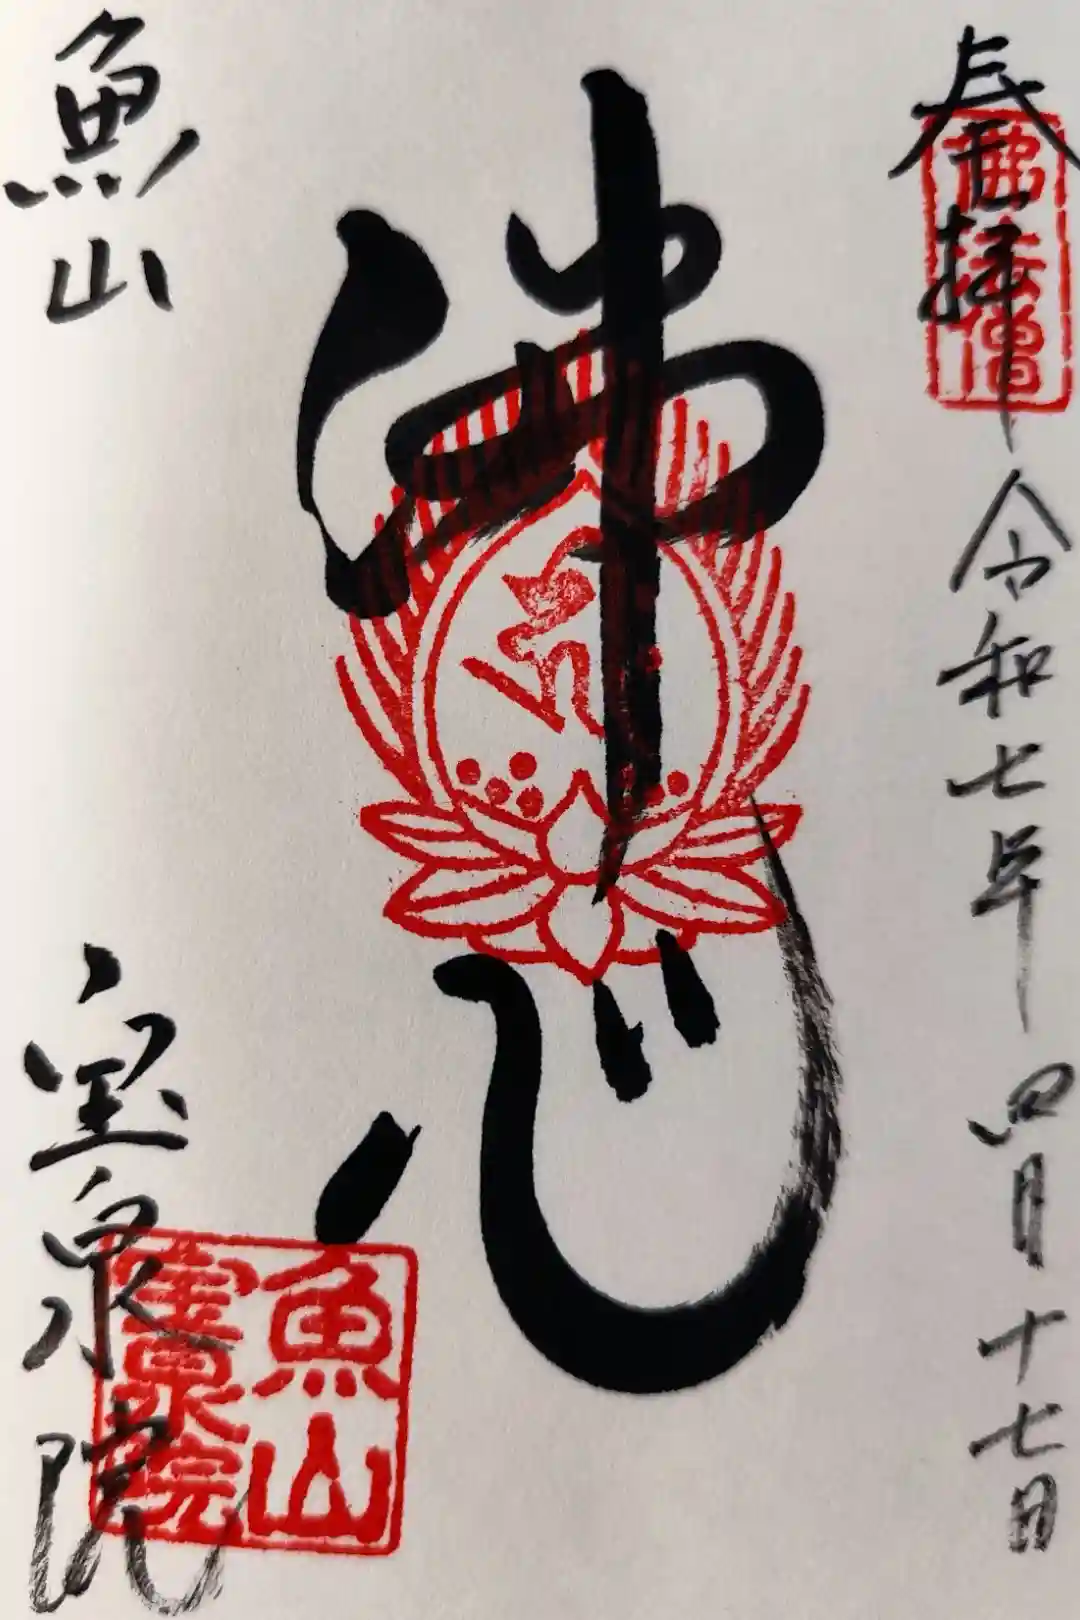 奉拝
佛法僧
令和七年 四月十七日
佛心
魚山
宝泉院
魚山
宝泉院